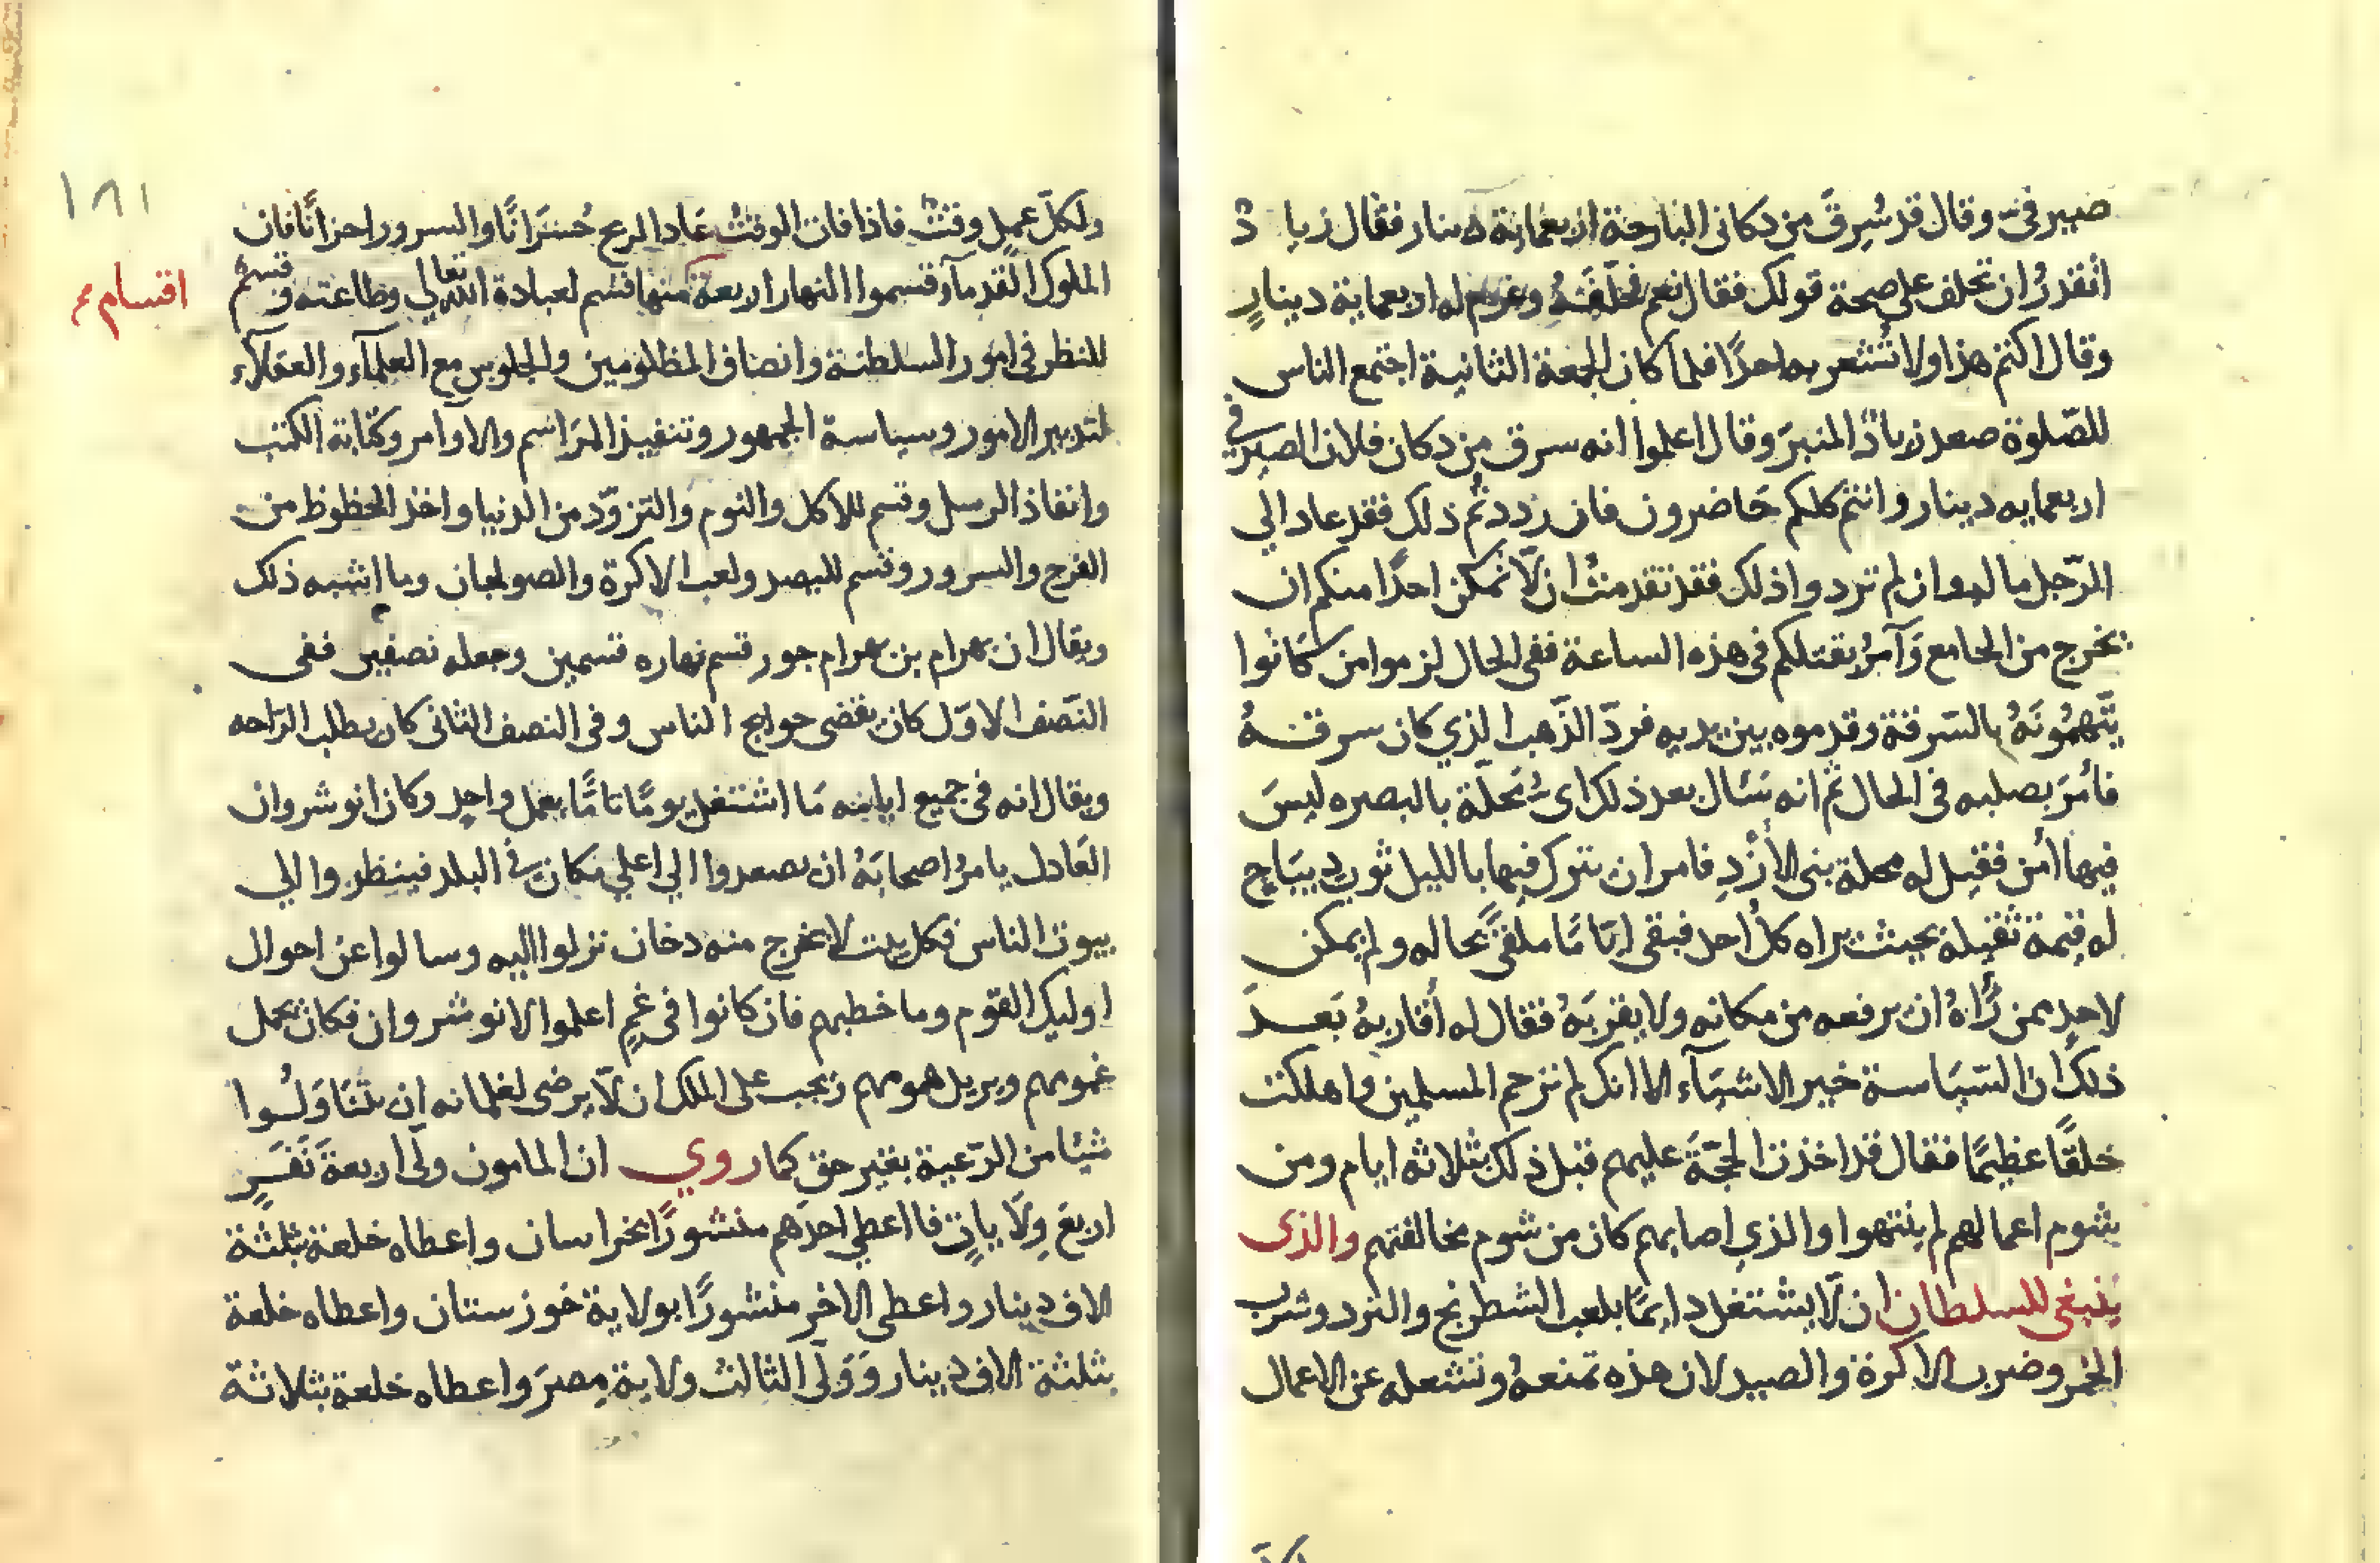 صيرفيّ وقال قد سُرِقَ من دكاني البارحة اربعماية دينار فقال زياد
أتقدرُ ان تحلف على صحة قولك فقال نعم فحلّفَهُ وغرم له اربعماية دينارٍ
وقال اكتم هذا ولا تُشعر به احدًا فلما كان الجمعة الثانية اجتمع الناس
للصّلوة صعد زيادٌ المنبرَ وقال اعلموا انه سرق من دكان فلان الصيرفي
اربعمايه دينار وانتم كلكم حَاضرون فان رددتُم ذلك فقد عاد الي
الرّجل ماله وان لم تردوا ذلك فقد تقدمتُ ان لّا نمكن احدًا منكم ان
يخرج من الجامع وَآمرُ بقتلكم في هذه الساعة ففي الحال لزموا من كَانوا
يتّهمُونَهُ بالسّرقة وقدموه بين يديه فردّ الذّهب الذي كان سرقهُ
فأمَرَ بصلبه في الحال ثم انه سَئال بعد ذلك اى مُحلّة بالبصره ليسَ
فيها أمن فقيل له محلة بني الأزْدِ فامر ان يترك فيها بالليل ثوب ديبَاج
له قيمة ثقيلة بحيث يراه كلُ احد فبقى ايّامًا ملقىً بحاله ولم يمكن
لاحدٍ ممن رَّاهُ ان يرفعه من مكانه ولا يقربَهُ فقال له أقاربهُ بَعد
ذلك ان السّيَاسة خير الاشيَآء الا انك لم ترحم المسلمين واهلكت
خلقًا عظيمًا فقال قد اخذت الحجّةَ عليهم قبل ذلك بثلاثه ايام ومن
شوم اعمالهم لم ينتهوا والذي اصابهم كان من شوم مخالفتهم والذى
ينبغي للسلطان ان لّا يشتغل دايمًا بلعب الشطرنج والنرد وشرب
الخمر وضرب الاكرة والصيد لان هذه تمنعهُ وتشعله عن الاعمال
١٨١
ولكلّ عملٍ وقتٌ فاذا فات الوقتُ عَاد الربح خُسرَانًا والسرور احزانًا فان
الملوك القدمآء قسموا النهار اربعة منها قسم لعبادة الله تعالي وطاعته وقسمٌ
اقسام
للنظر في امور السلطنة وانصاف المظلومين والجلوس مع العلمآء والعقلآء
لتدبير الامور وسياسة الجمهور وتنفيذ المَرَاسم والاوامر وكتابة الكتب
وانفاذ الرسل وقسم للاكل والنوم والتزوّد من الدنيا واخذ الحظوظ من
الفرح والسرور وقسم للصيد ولعب الاكرة والصولجان وما اشبه ذلك
ويقال ان بهرام بن بهرام جور قسم نهاره قسمين وجعله نصفين ففى
النّصف الاوّل كان يقضى حوايج الناس وفى النصف الثانى كان يطلب الرّاحه
ويقال انه في جميع ايامه مَا اشتغل يومًا تامًّا بعمل واحدٍ وكان انوشروان
العَادل يامرُ اصحابَهُ ان يصعدوا الي اعلي مكان في البلد فينظروا الي
بيوت الناس فكل بيت لا يخرج منه دخان نزلوا اليه وسالوا عن احوال
اوليك القوم وما خطبهم فان كانوا فى غمٍ اعلموا الانوشروان فكان يحمل
غمومهم ويزيل همومهم ويجب على الملك ان لّا يرضى لغلمانه ان يتَنَاوَلُوا
شيًا من الرّعية بغير حق كما روي ان المامون ولّى اربعةَ نَفَرٍ
اربعَ وِلَاياتٍ فاعطي احدَهم منشورًا بخراسان واعطاه خلعة بثلثة
الاف دينار واعطى الاخر منشورًا بولاية خوزستان واعطاه خلعة
بثلثة الاف دينار وَوَلّى الثالث ولاية مِصرَ واعطاه خلعة بثلاثة